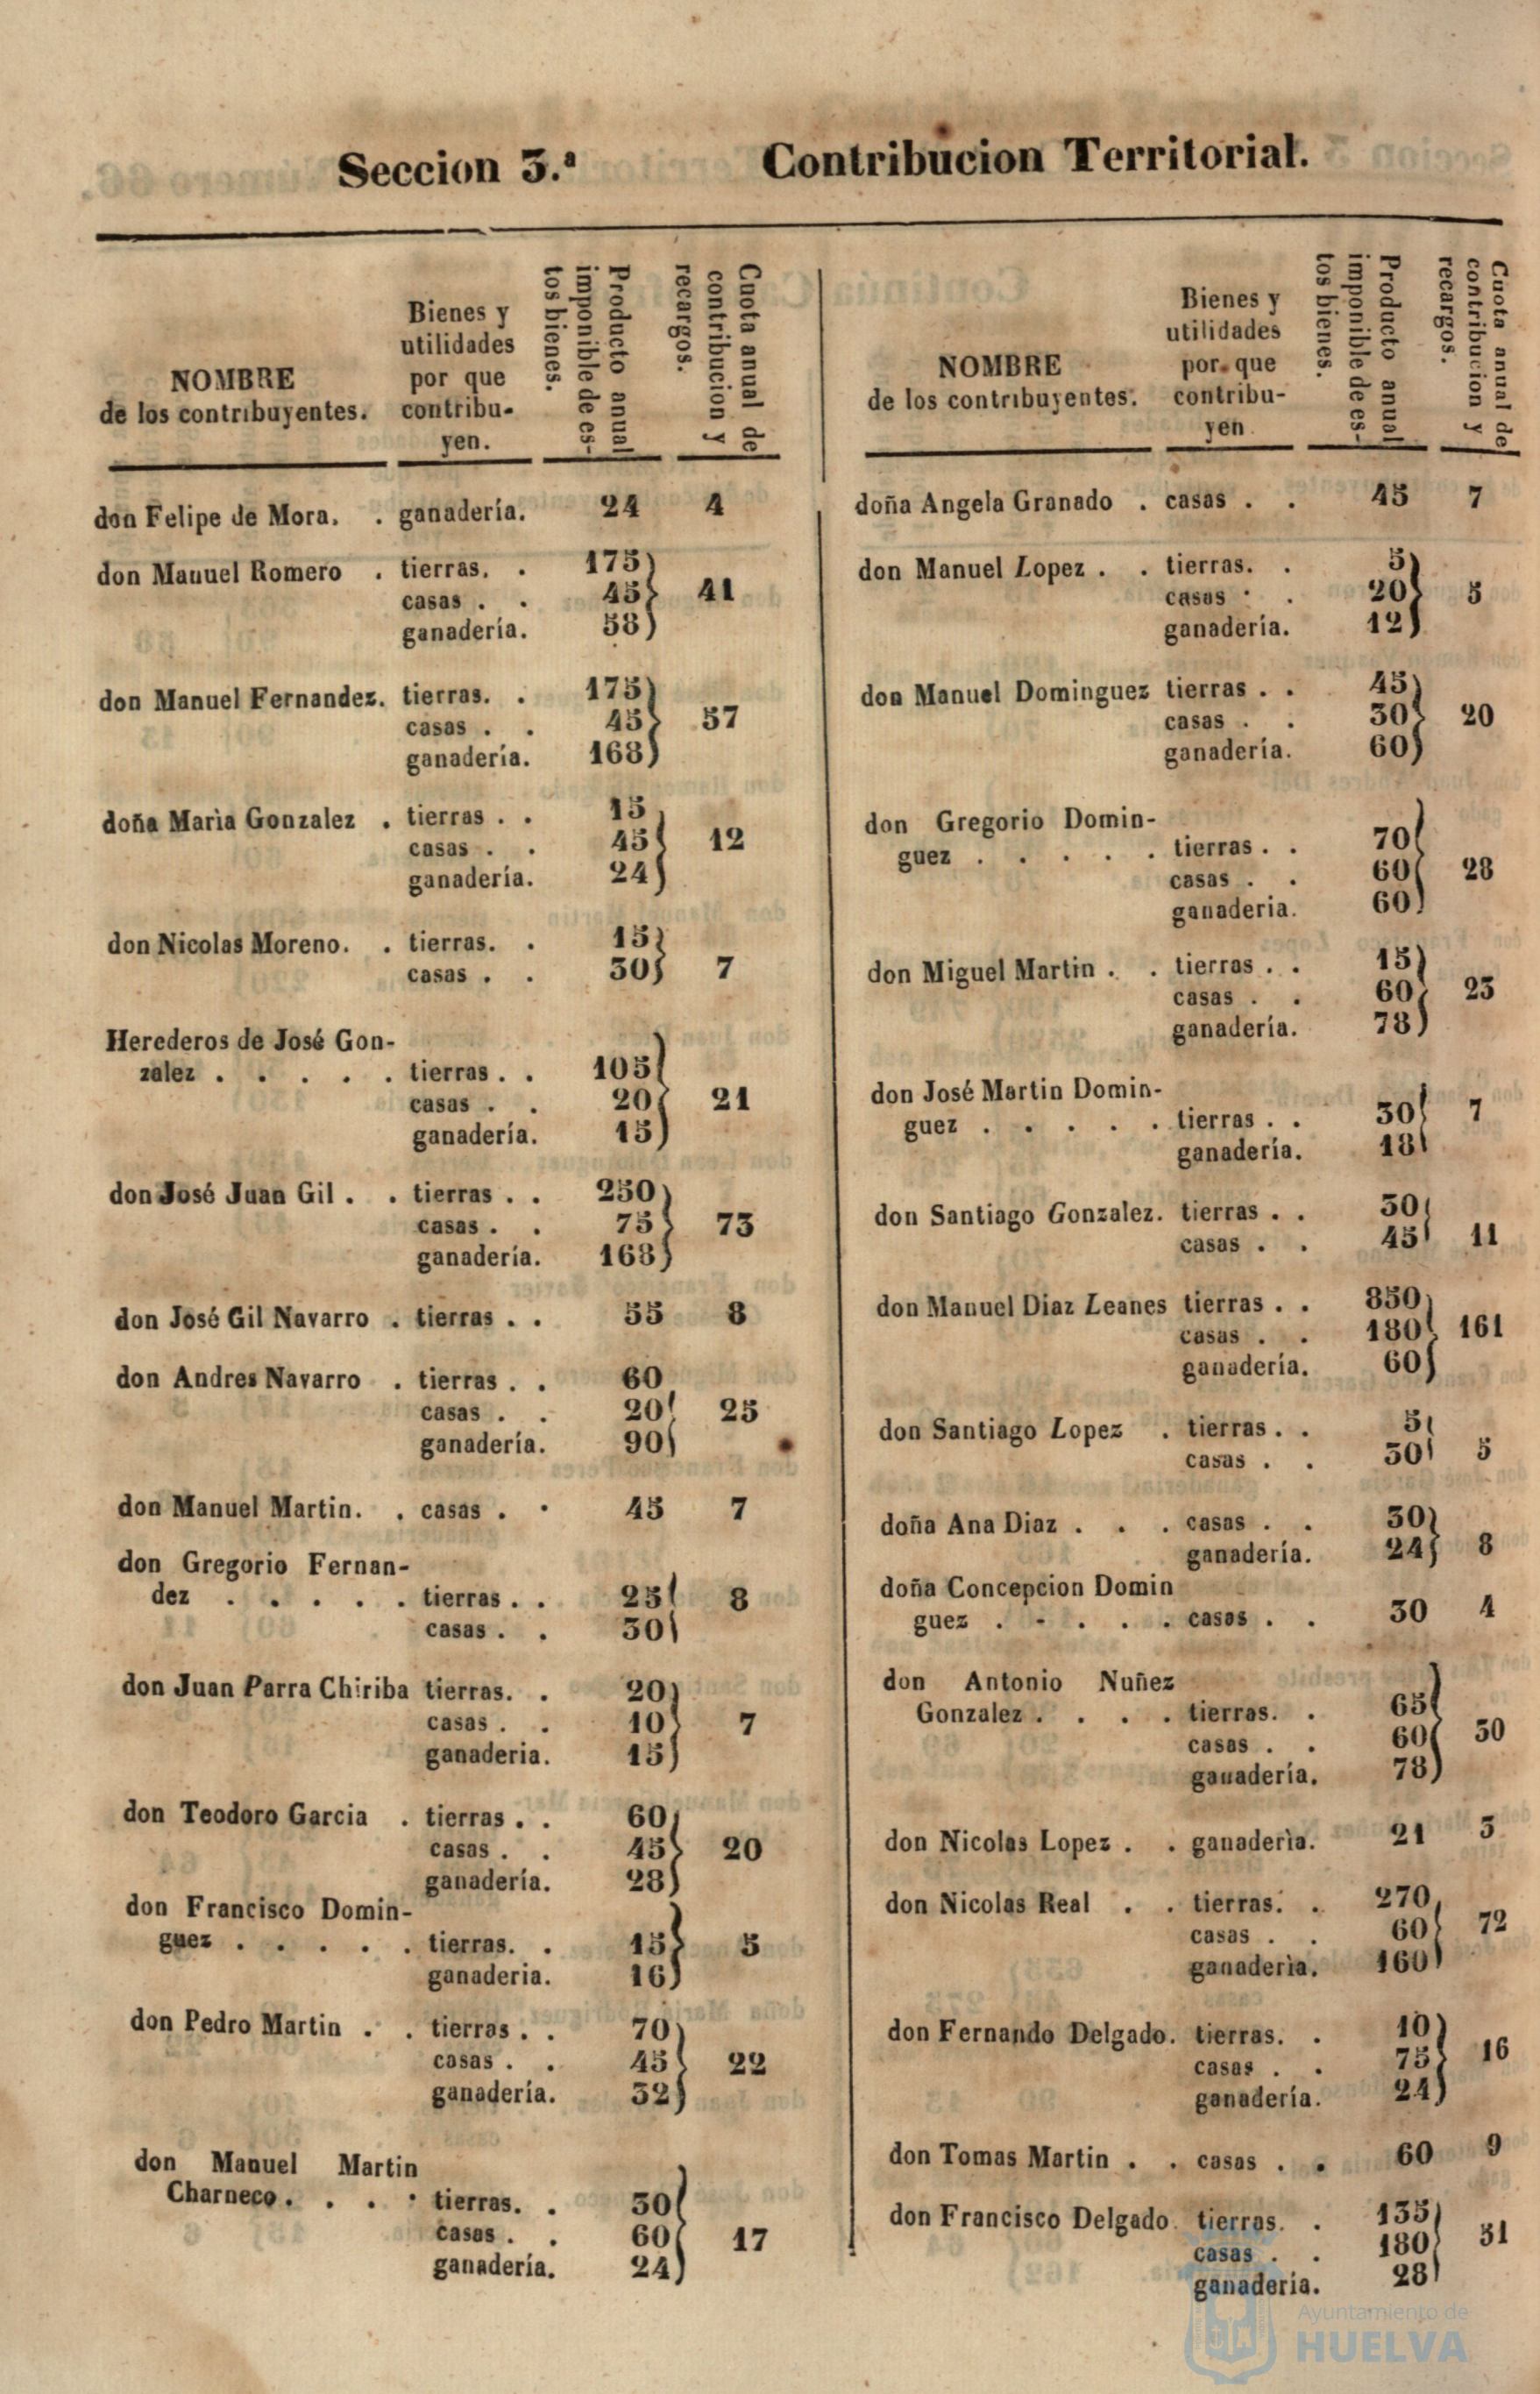 Seccion 3.ª Contribucion Territorial.
NOMBRE
de los contribuyentes.
Bienes y
utilidades
por que
contribu-
yen.
Producto anual
imponible de es-
tos bienes.
Cuota anual de
contribucion y
recargos.
don Felipe de Mora. . ganadería. 24 4
don Manuel Romero . tierras. . 175
casas . . 45 41
ganadería. 58
don Manuel Fernandez. tierras. . 175
casas . . 45 57
ganadería. 168
doña Maria Gonzalez . tierras . . 15
casas . . 45 12
ganadería. 24
don Nicolas Moreno. . tierras. . 15
casas . . 30 7
Herederos de José Gon-
zalez . . . . . tierras . . 105
casas . . 20 21
ganadería. 15
don José Juan Gil . . tierras . . 250
casas . . 75 73
ganadería. 168
don José Gil Navarro . tierras . . 55 8
don Andres Navarro . tierras . . 60
casas . . 20 25
ganadería. 90
don Manuel Martin. . casas . . 45 7
don Gregorio Fernan-
dez . . . . . tierras . . 25 8
casas . . 30
don Juan Parra Chiriba tierras. . 20
casas . . 10 7
ganaderia. 15
don Teodoro Garcia . tierras . . 60
casas . . 45 20
ganadería. 28
don Francisco Domin-
guez . . . . . tierras. . 15 5
ganaderia. 16
don Pedro Martin . . tierras . . 70
casas . . 45 22
ganadería. 32
don Manuel Martin
Charneco. . . . tierras. . 30
casas . . 60 17
ganadería. 24
NOMBRE
de los contribuyentes.
Bienes y
utilidades
por que
contribu-
yen
Producto anual
imponible de es-
tos bienes.
Cuota anual de
contribucion y
recargos.
doña Angela Granado . casas . . 45 7
don Manuel Lopez . . tierras. . 5
casas . . 20 5
ganadería. 12
don Manuel Dominguez tierras . . 45
casas . . 30 20
ganadería. 60
don Gregorio Domin-
guez . . . . . tierras . . 70
casas . . 60 28
ganaderia. 60
don Miguel Martin . . tierras . . 15
casas . . 60 23
ganadería. 78
don José Martin Domin-
guez . . . . . tierras . . 30 7
ganadería. 18
don Santiago Gonzalez. tierras . . 30
casas . . 45 11
don Manuel Diaz Leanes tierras . . 850
casas . . 180 161
ganadería. 60
don Santiago Lopez . tierras . . 5
casas . . 30 5
doña Ana Diaz . . . casas . . 30
ganadería. 24 8
doña Concepcion Domin
guez . . . . . casas . . 30 4
don Antonio Nuñez
Gonzalez . . . . tierras. . 65
casas . . 60 30
ganadería. 78
don Nicolas Lopez . . ganadería. 21 3
don Nicolas Real . . tierras. . 270
casas . . 60 72
ganadería. 160
don Fernando Delgado. tierras. . 10
casas . . 75 16
ganadería. 24
don Tomas Martin . . casas . . 60 9
don Francisco Delgado. tierras. . 135
casas . . 180 51
ganaderia. 28
Ayuntamiento de
HUELVA